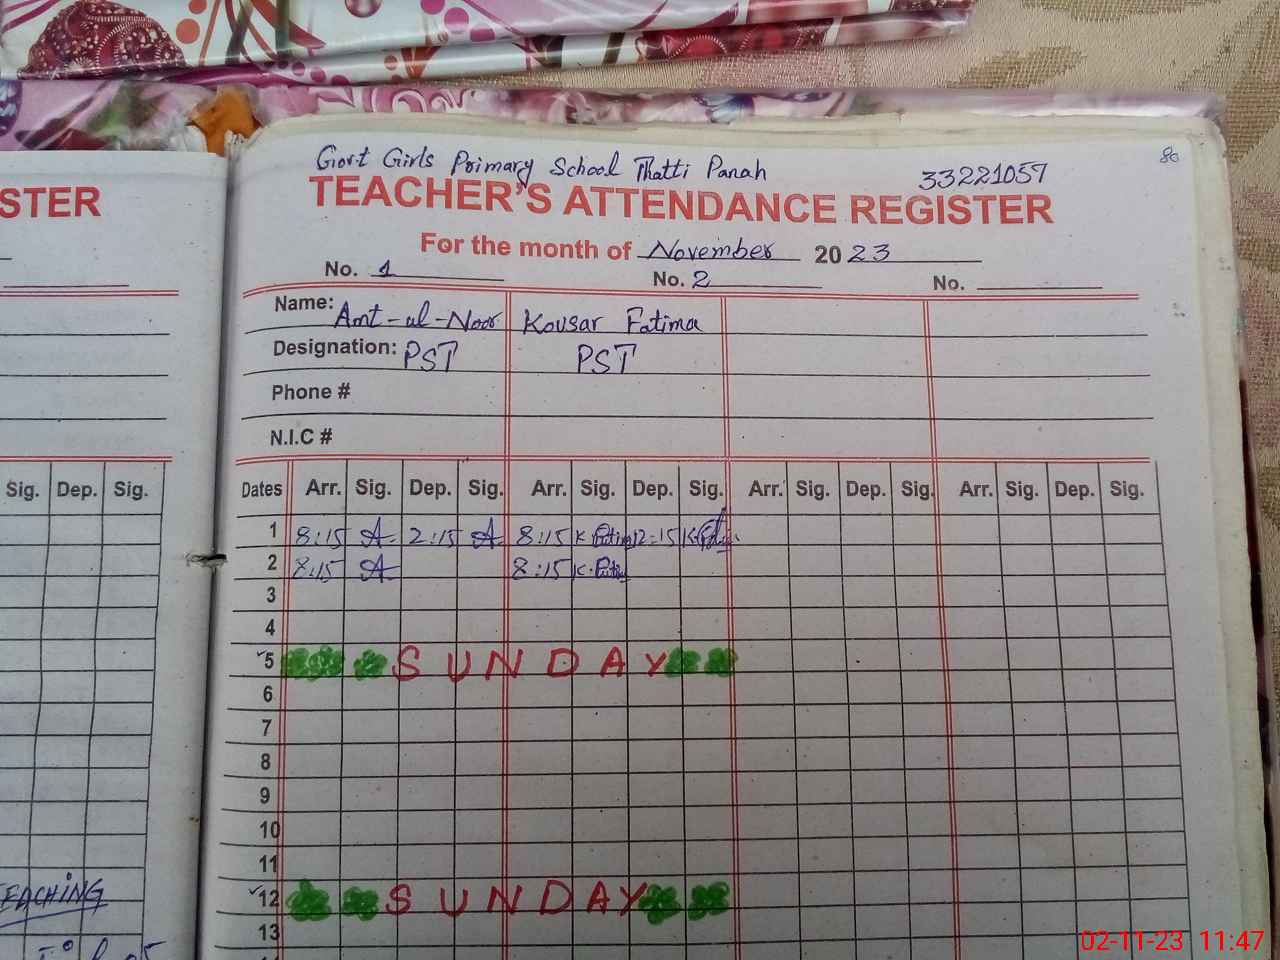 Govt Girls Primary School Thatti Panah 33221057 80
STER
TEACHER'S ATTENDANCE REGISTER
For the month of November 2023
No. 1 No. 2 No.
Name: Amt-ul-Noor Kousar Fatima
Designation: PST PST
Phone #
N.I.C #
Sig. Dep. Sig.
Dates Arr. Sig. Dep. Sig. Arr. Sig. Dep. Sig. Arr. Sig. Dep. Sig. Arr. Sig. Dep. Sig.
1 8:15 A 2:15 A 8:15 K. 2:15 K.
2 8:15 A 8:15 K.
3
4
5 SUNDAY
6
7
8
9
10
11
EACHING
12 SUNDAY
13
02-11-23 11:47